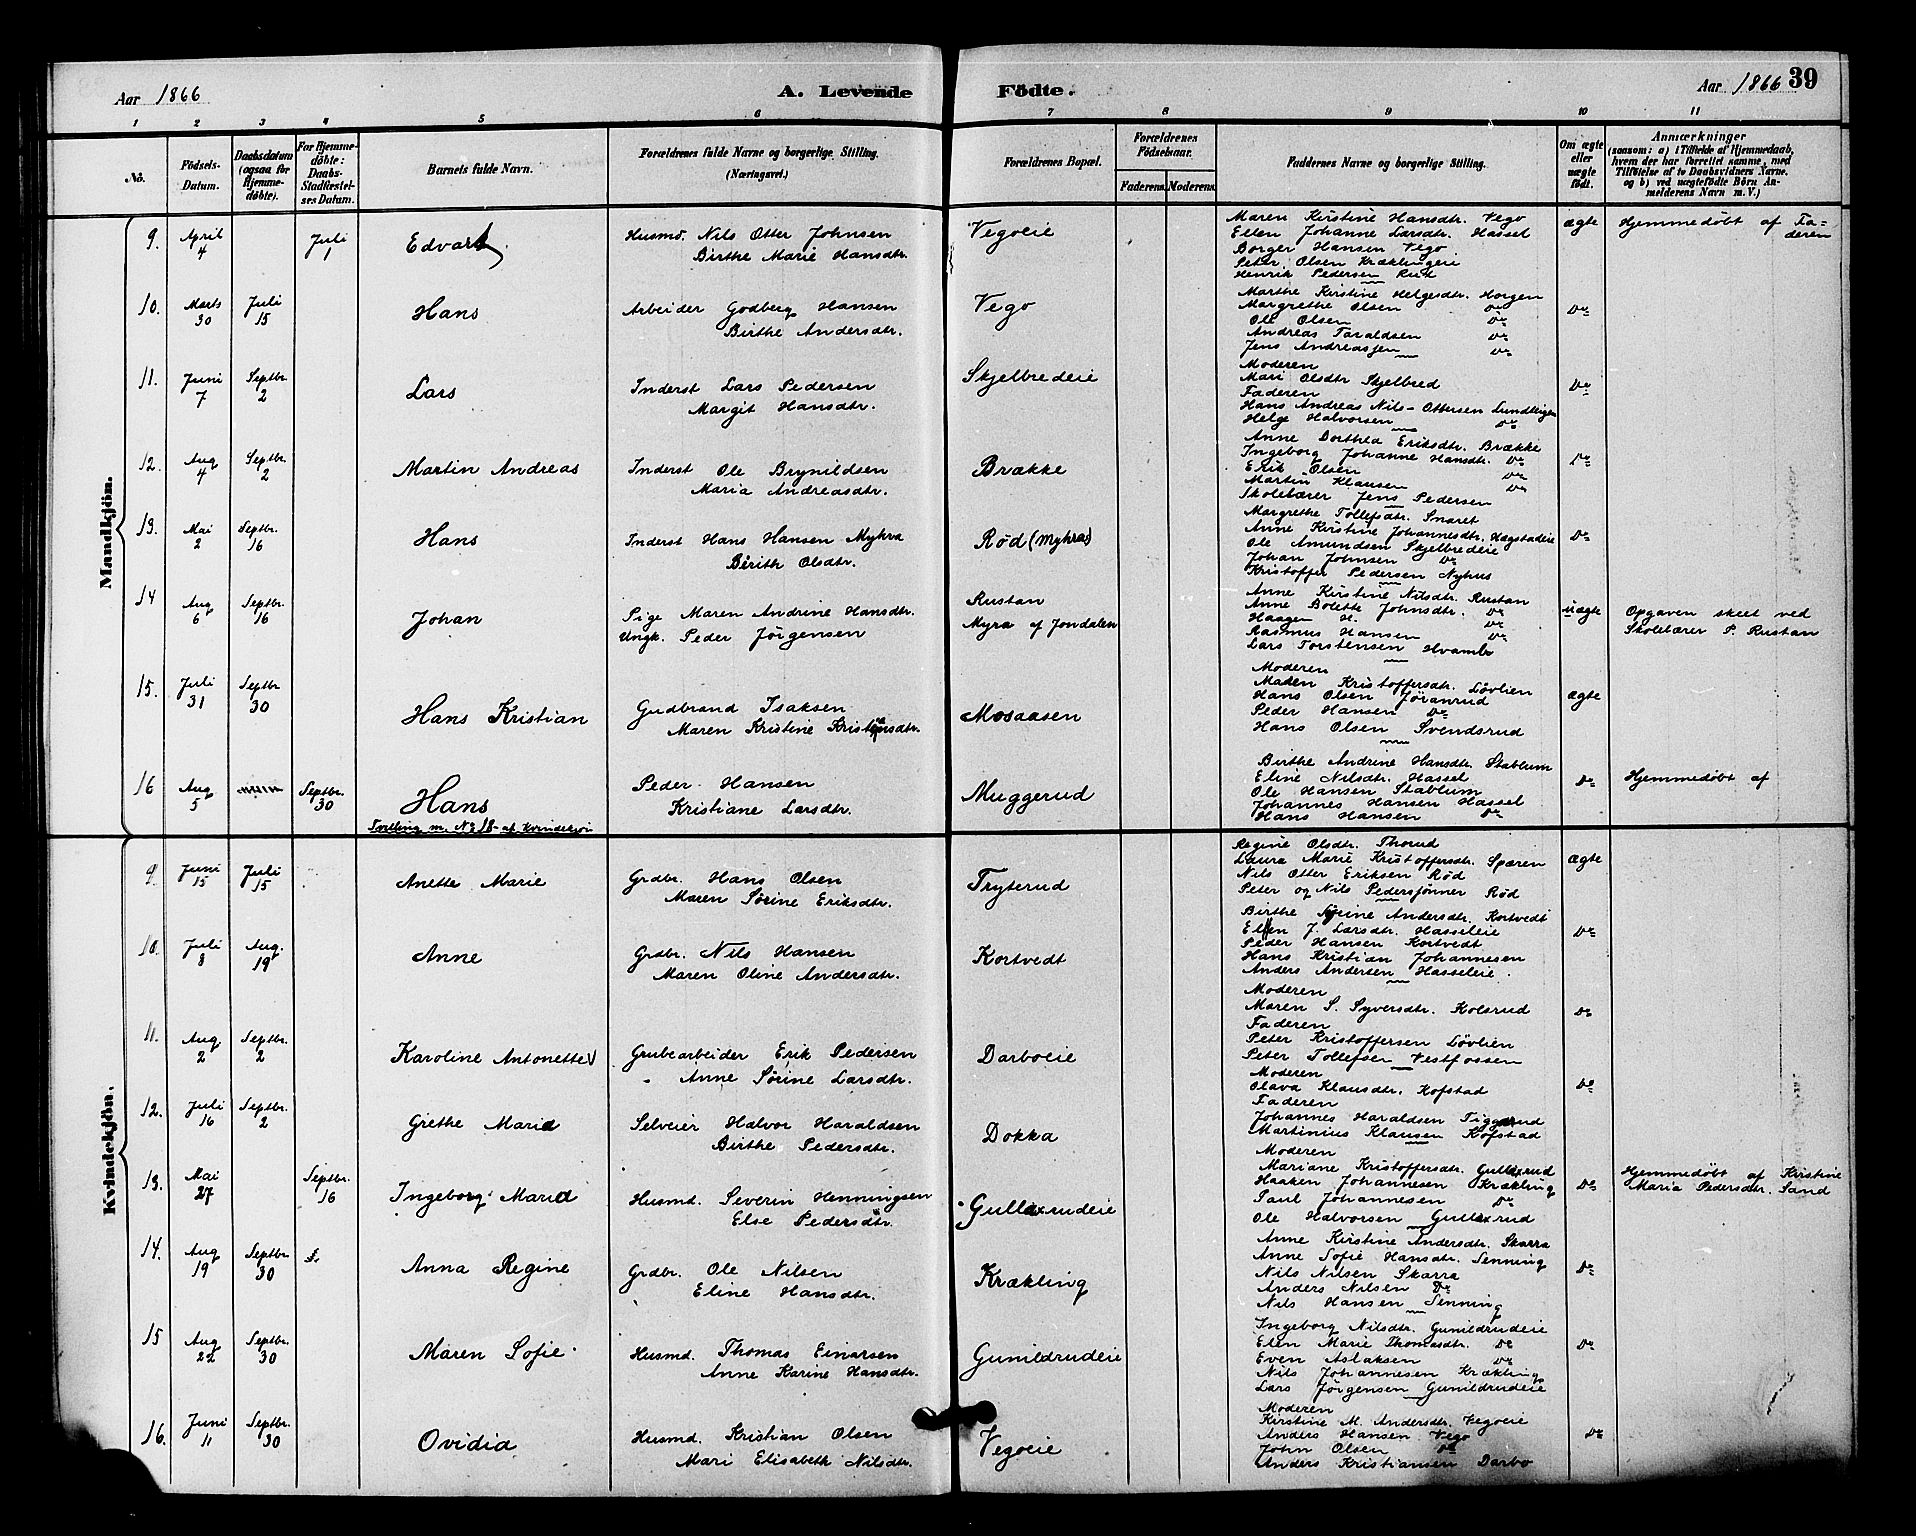 Aar 1866 A. Levende Födte. Aar 1866 39
1 2 3 4 5 6 7 8 9 10 11
No. Födsels-Datum. Daabsdatum (ogsaa for Hjemmedöbte). For Hjemmedöbte: Daabs-Stadfæstelses Datum. Barnets fulde Navn. Forældrenes fulde Navne og borgerlige Stilling. (Næringsvei.) Forældrenes Bopæl. Forældrenes Födselsaar. Faderens. Moderens. Faddernes Navne og borgerlige Stilling. Om ægte eller uægte födt. Anmærkninger (saasom: a) i Tilfælde af Hjemmedaab, hvem der har forrettet samme, med Tilföielse af to Daabsvidners Navne, og b) ved uægtefödte Börn Anmelderens Navn m. V.)
Mandkjön.
9. April 4 Juli 1 Edvart Husmd. Nils Otter Johnsen Vegoeie ægte Hjemmedøbt af Faderen
Birthe Marie Hansdtr.
Maren Kirstine Hansdtr. Vego
Ellen Johanne Larsdtr. Hassel
Borger Hansen Vego
Peter Olsen Kræklingeie
Henrik Pedersen Rud
10. Marts 30 Juli 15 Hans Arbeider Godberg Hansen Vego Do
Birthe Andersdtr.
Marthe Kirstine Helgesdtr. Horgen
Margrethe Olsen Do
Ole Olsen Do
Andreas Taraldsen Do
Jens Andreassen Do
11. Juni 7 Septbr. 2 Lars Inderst Lars Pedersen Skjelbredeie Do
Margit Hansdtr.
Moderen
Mari Olsdtr Skjelbred
Faderen
Hans Andreas Nils-Ottersen
Helge Halvorsen Do
12. Aug 4 Septbr. 2 Martin Andreas Inderst Ole Brynildsen Brække Do
Maria Andreasdtr.
Anne Dorthea Eriksdtr. Brække
Ingeborg Johanne Hansdtr. Do
Erik Olsen Do
Martin Klausen Do
Skolelærer Jens Pedersen
13. Mai 2 Septbr. 16 Hans Inderst Hans Hansen Myhra Rød (Myhra) Do
Berith Olsdtr.
Margrethe Tollefsdtr. Snaret
Anne Kirstine Johannesdtr. Hagstadeie
Ole Amundsen Skjelbredeie
Johan Johnsen Do
Kristoffer Pedersen Nyhus
14 Aug 6 Septbr. 16 Johan Pige Maren Andrine Hansdtr. Rustan uægte Opgaven skeet ved
Ungk. Peder Jørgensen Myra af Jondalen Skolelærer P. Rustan
Anne Kirstine Nilsdtr. Rustan
Anne Bolette Johnsdtr. Do
Haagen H. Do
Rasmus Hansen Do
Lars Torstensen Hvambr
15. Juli 31 Septbr 30 Hans Kristian Gudbrand Isaksen Mosaasen ægte
Maren Kristine Kristensdtr.
Moderen
Maren Kristoffersdtr. Løvlien
Hans Olsen Jøranrud
Peder Hansen Do
Hans Olsen Svendsrud
16 Aug 5 Septbr. 30 Hans Peder Hansen Muggerud Do Hjemmedøbt af
Tvilling m. No 18 af Kvindekjøn Kristiane Larsdtr.
Birthe Andrine Hansdtr. Stablum
Eline Nilsdtr. Hassel
Ole Hansen Stablum
Johannes Hansen Hassel
Hans Hansen Do
Kvindekjön.
9. Juni 15 Juli 15 Anette Marie Grdbr. Hans Olsen Tryterud ægte
Maren Sørine Eriksdtr.
Regine Olsdtr. Thorud
Laura Marie Kristoffersdtr. Spæren
Nils Otter Eriksen Rød
Peter og Nils Pedersønner Rød
10. Juli 8 Aug. 19 Anne Grdbr. Nils Hansen Kortvedt Do
Maren Oline Andersdtr.
Birthe Sørine Andersdtr. Kortvedt
Ellen J. Larsdtr. Hasseleie
Peder Hansen Kortvedt
Hans Kristian Johannesen
Anders Andersen Hasseleie.
11. Aug 2 Septbr. 2 Karoline Antonette Grubearbeider Erik Pedersen Darboeie Do
Anne Sørine Larsdtr.
Moderen
Maren S. Syversdtr. Kolsrud
Faderen
Peter Kristoffersen Løvlien
Peter Tollefsen Vestfossen
12. Juli 16 Septbr. 2 Grethe Maria Selveier Halvor Haraldsen Dokka Do
Birthe Pedersdtr.
Moderen
Olava Klausdtr. Kofstad
Faderen
Johannes Haraldsen Tiggerud
Martinius Klausen Kofstad
13. Mai 27 Septbr. 16 Ingeborg Maria Husmd. Severin Henningsen Gullaxrudeie Do Hjemmedøbt af Kristine
Else Pedersdtr. Maria Pedersdtr. Sand
Moderen
Mariane Kristoffersdtr. Gullaxrud
Haaken Johannesen Krækling
Paul Johannesen Do
Ole Halvorsen Gullaxrud
14. Aug 19 Septbr. 30 Anna Regine Grdbr. Ole Nilsen Krækling Do
Eline Hansdtr.
Anne Kirstine Andersdtr. Skarra
Anne Sofie Hansdtr. Senning
Nils Nilsen Skarra
Anders Nilsen Do
Nils Hansen Senning
15 Aug 22 Septbr. 30 Maren Sofie Husmd. Thomas Einarsen Gunildrudeie Do
Anne Karine Hansdtr.
Ingeborg Nilsdtr. Gunildrudeie
Elen Marie Thomasdtr. Do
Even Aslaksen Do
Nils Johannesen Krækling
Lars Jørgensen Gunildrudeie
16. Juni 11 Septbr. 30 Ovidia Husmd. Kristian Olsen Vegoeie Do
Mari Elisabeth Nilsdtr.
Moderen
Kirstine M. Andersdtr. Vegoeie
Anders Hansen Vego
John Olsen Do
Anders Kristiansen Darbo